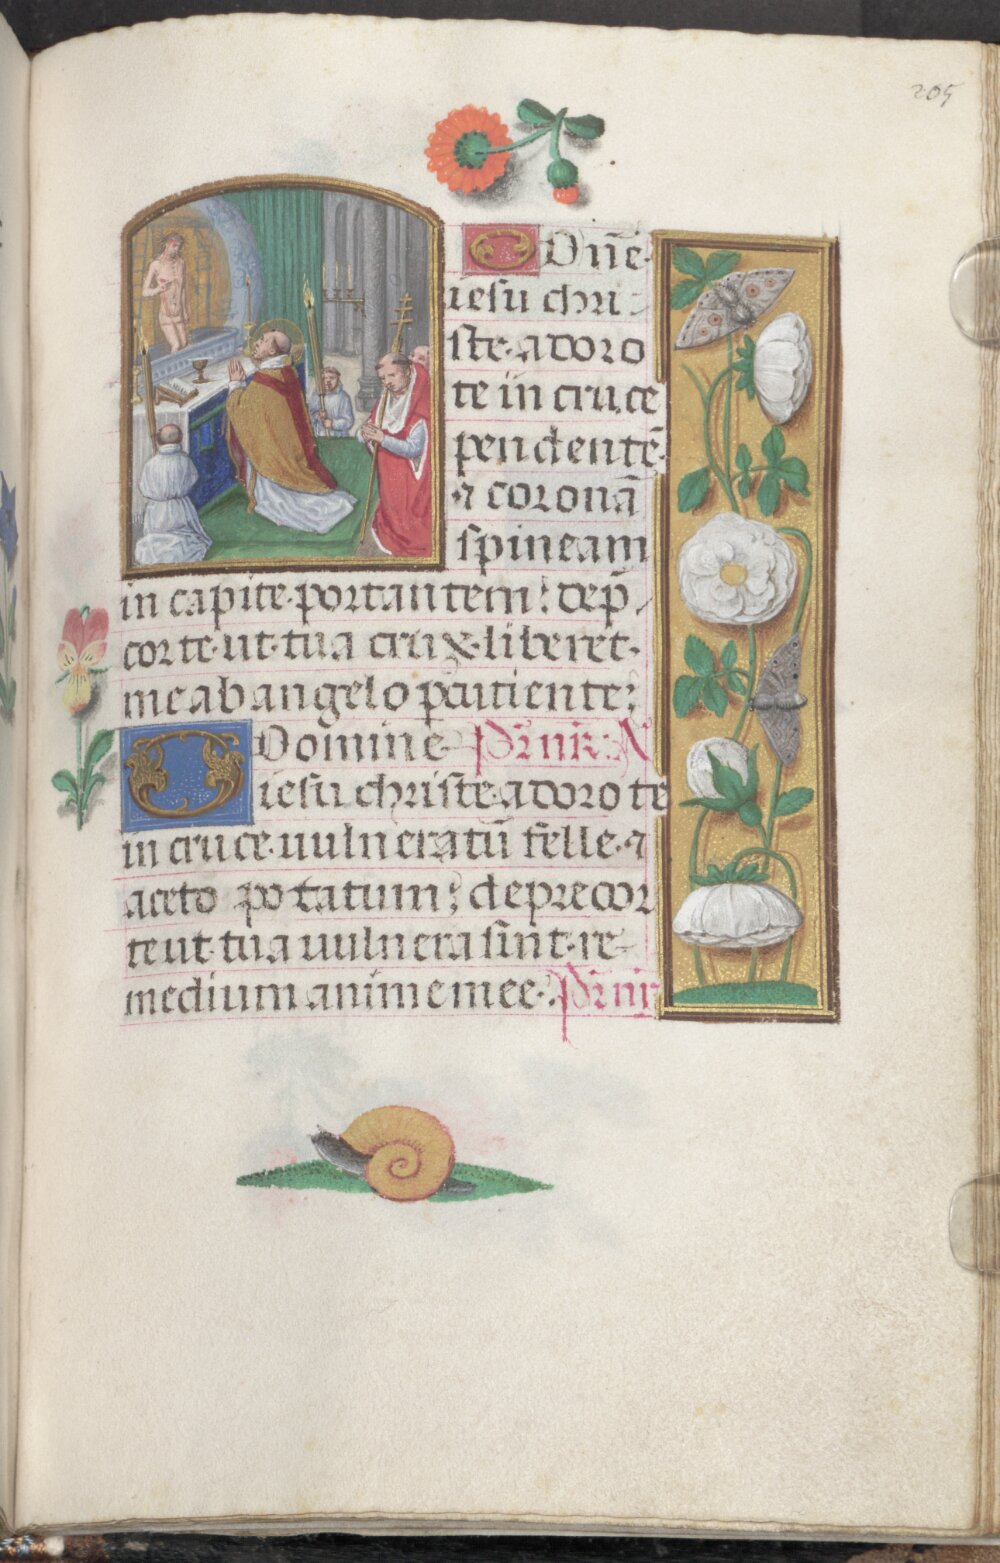 205
O Dn̄e·
iesu chri-
ste·adoro
te in cruce
pendentē·
⁊ coronā
spineam
in capite·portantem: dep̄-
cor te·ut·tua crux·liberet·
me ab angelo pcutiente:
O Domine· Pr̄ nr̄: A
iesu christe·adoro te
in cruce·uulneratū felle·⁊
aceto potatum: deprecor
te ut·tua uulnera sint·re-
medium anime mee· Pr̄ nr̄